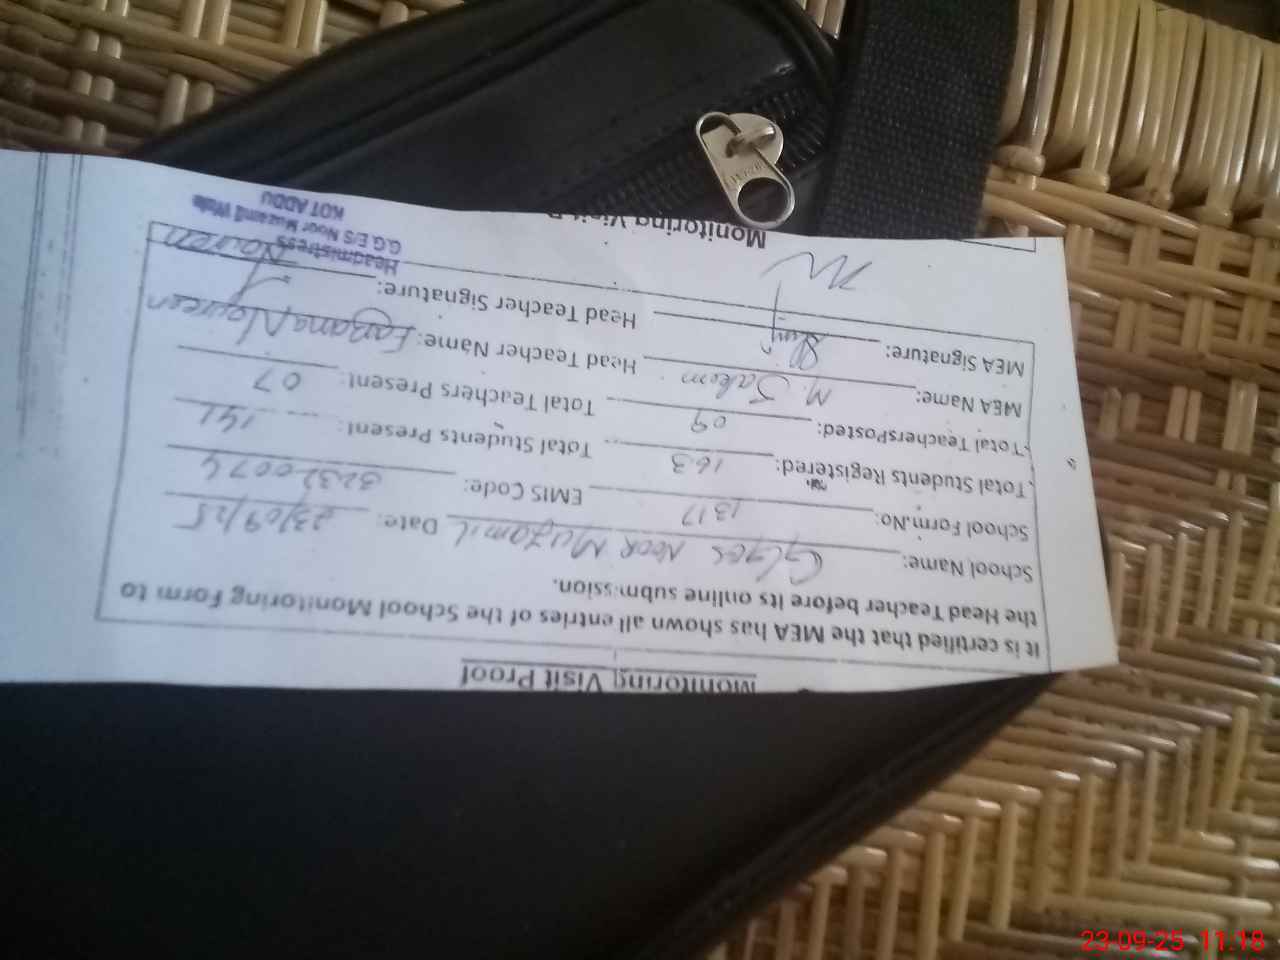 Monitoring Visit Proof
It is certified that the MEA has shown all entries of the School Monitoring Form to
the Head Teacher before its online submission.
School Name: Noor Muzamil Date: 23/09/25
School Form.No: 1317 EMIS Code: 32320074
Total Students Registered: 163 Total Students Present: 142
Total TeachersPosted: 09 Total Teachers Present: 07
MEA Name: M. Saleem Head Teacher Name: Farzana Noureen
MEA Signature: Head Teacher Signature: Noureen
Headmistress
G.G.E/S Noor Muzamil Wala
KOT ADDU
Monitoring Visit
23-09-25 11:18